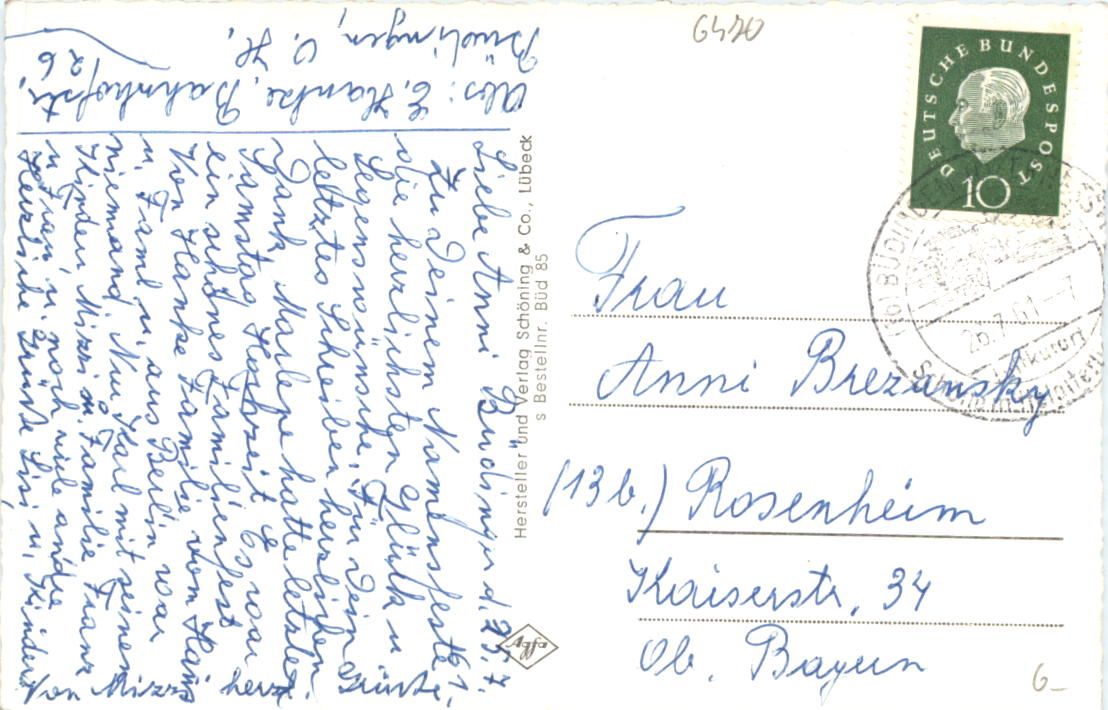 6470
Abs: E. Hanke, Bahnhofstr. 26
Büdingen, O. H.
Büdingen, d. 25.7.61.
Liebe Anni
Zu Deinem Namensfeste,
die herzlichsten Glück u
Segenswünsche. Für Dein
letztes Schreiben herzlichen
Dank, Marlene hatte letzten
Samstag Hochzeit, es war
ein schönes Familienfest
Von Hanke Familie vom Hans
u. Faml. u. aus Berlin war
niemand. Nur Karl mit seinen
Kindern Mizzi u. Familie Franz
u. Frau u. noch viele andre
Herzliche Grüße Lisi u. Kinder
Von Mizzi herzl Grüße
Hersteller und Verlag Schöning & Co., Lübeck
s Bestellnr. Büd 85
Agfa
DEUTSCHE BUNDESPOST
10
(16) BÜDINGEN
26.7.61-7
Luftkurort
Frau
Anni Brezansky
(13b.) Rosenheim
Kaiserstr. 34
Ob. Bayern
6-